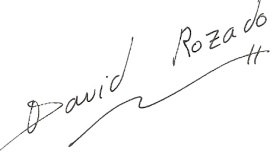 David Rozado